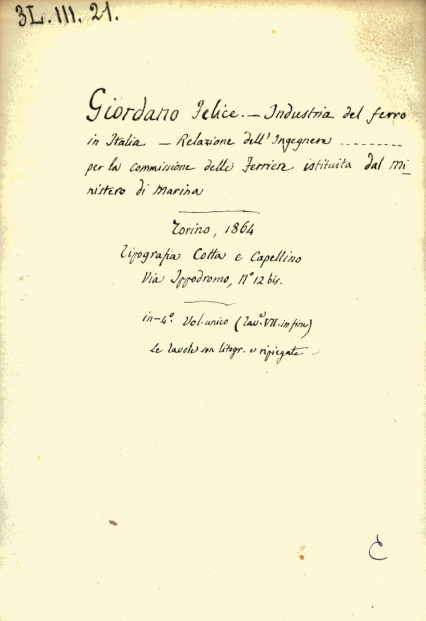 3L.III.21.
Giordano Felice. — Industria del ferro
in Italia — Relazione dell'Ingegnere ..........
per la commissione delle Ferriere istituita dal mi-
nistero di Marina
Torino, 1864
Tipografia Cotta e Capellino
Via Ippodromo, N° 12 bis.
in-4°. Vol. unico (Tavᵉ. VII. in fine)
Le tavole son litogr. e ripiegate